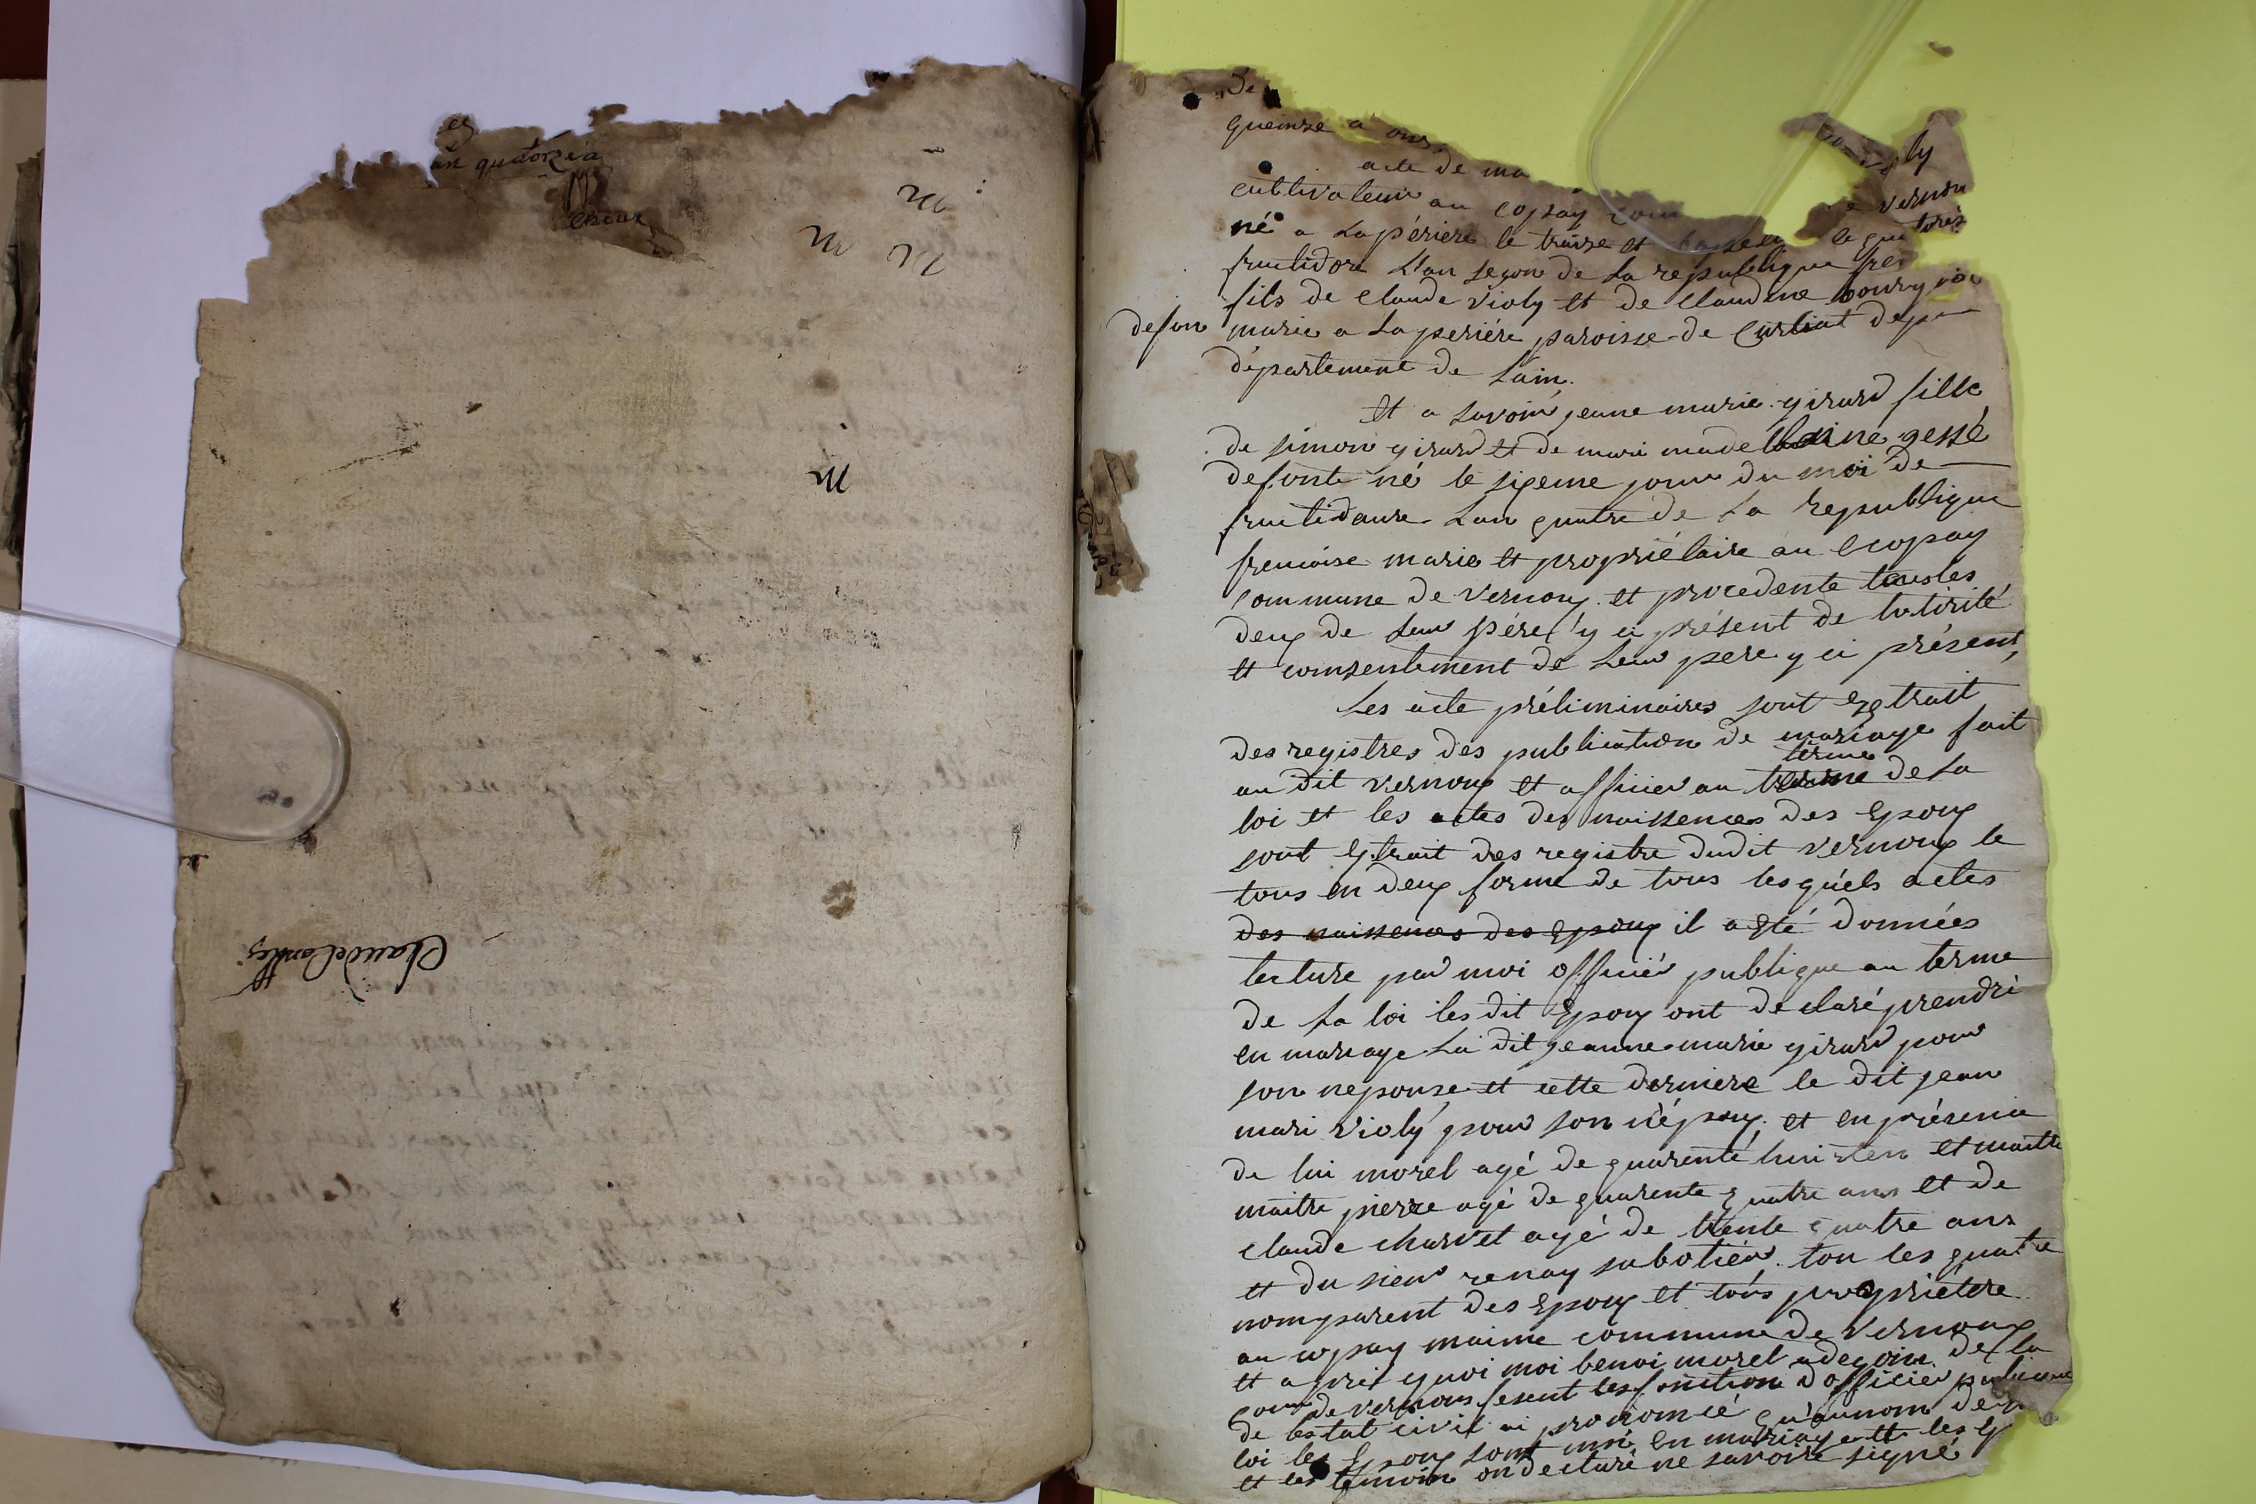 an quatorzea
Claude
De
queinze a
acte de ma
cultivateur au copay com vernou
né a Laperiere le treize et le quatorze
fructidore L'an segon de La republique
fils de claude violy et de claudine
defon marie a Laperiére paroisse de Curtiat
département de Lain.
et a savoir jeanne marie girard fille
de simon girard et de mari madelleine gessé
defonte né le sixeme jour du moi de
fructidaure Lan quatre de La republique
frencoise marie et propriétaire au copay
commune de vernoux et procedente tousles
deux de Leur pére y ci présent de lotorité
et comsentement de Leur pere y ci présent,
Les acte préliminaires sont extrait
des registres des publication de mariage fait
terme
au dit vernoux et afficier au terme de La
loi et les actes des naissences des Epoux
sont Extrait des registre dudit vernoux le
tous en deux forme de tous lesquels actes
des naissences des Epoux il a Eté données
lecture par moi officier publique au terme
de La loi lesdit Epoux ont declaré prendre
en mariage La dit jeanne marie girard pour
son nepouse et cette derniere le dit jean
mari violy pour son népoux et en présence
de lui morel agé de quarente et maitre
maitre pierre agé de quarente quatre ans et de
claude charvet agé de trente quatre ans
et du sieur renoy sabotier tou les quatre
nomparent des Epoux et tous propriétere
au copay maime commune de vernoux
et apres quoi moi benoi morel adegoin de la
comm de vernoux fesent les fonction dofficier publique
de lestat civil ai prononcé qu'aunom de
loi les Epoux sont uni en mariage et les
et les temoin on declaré ne savoire signé